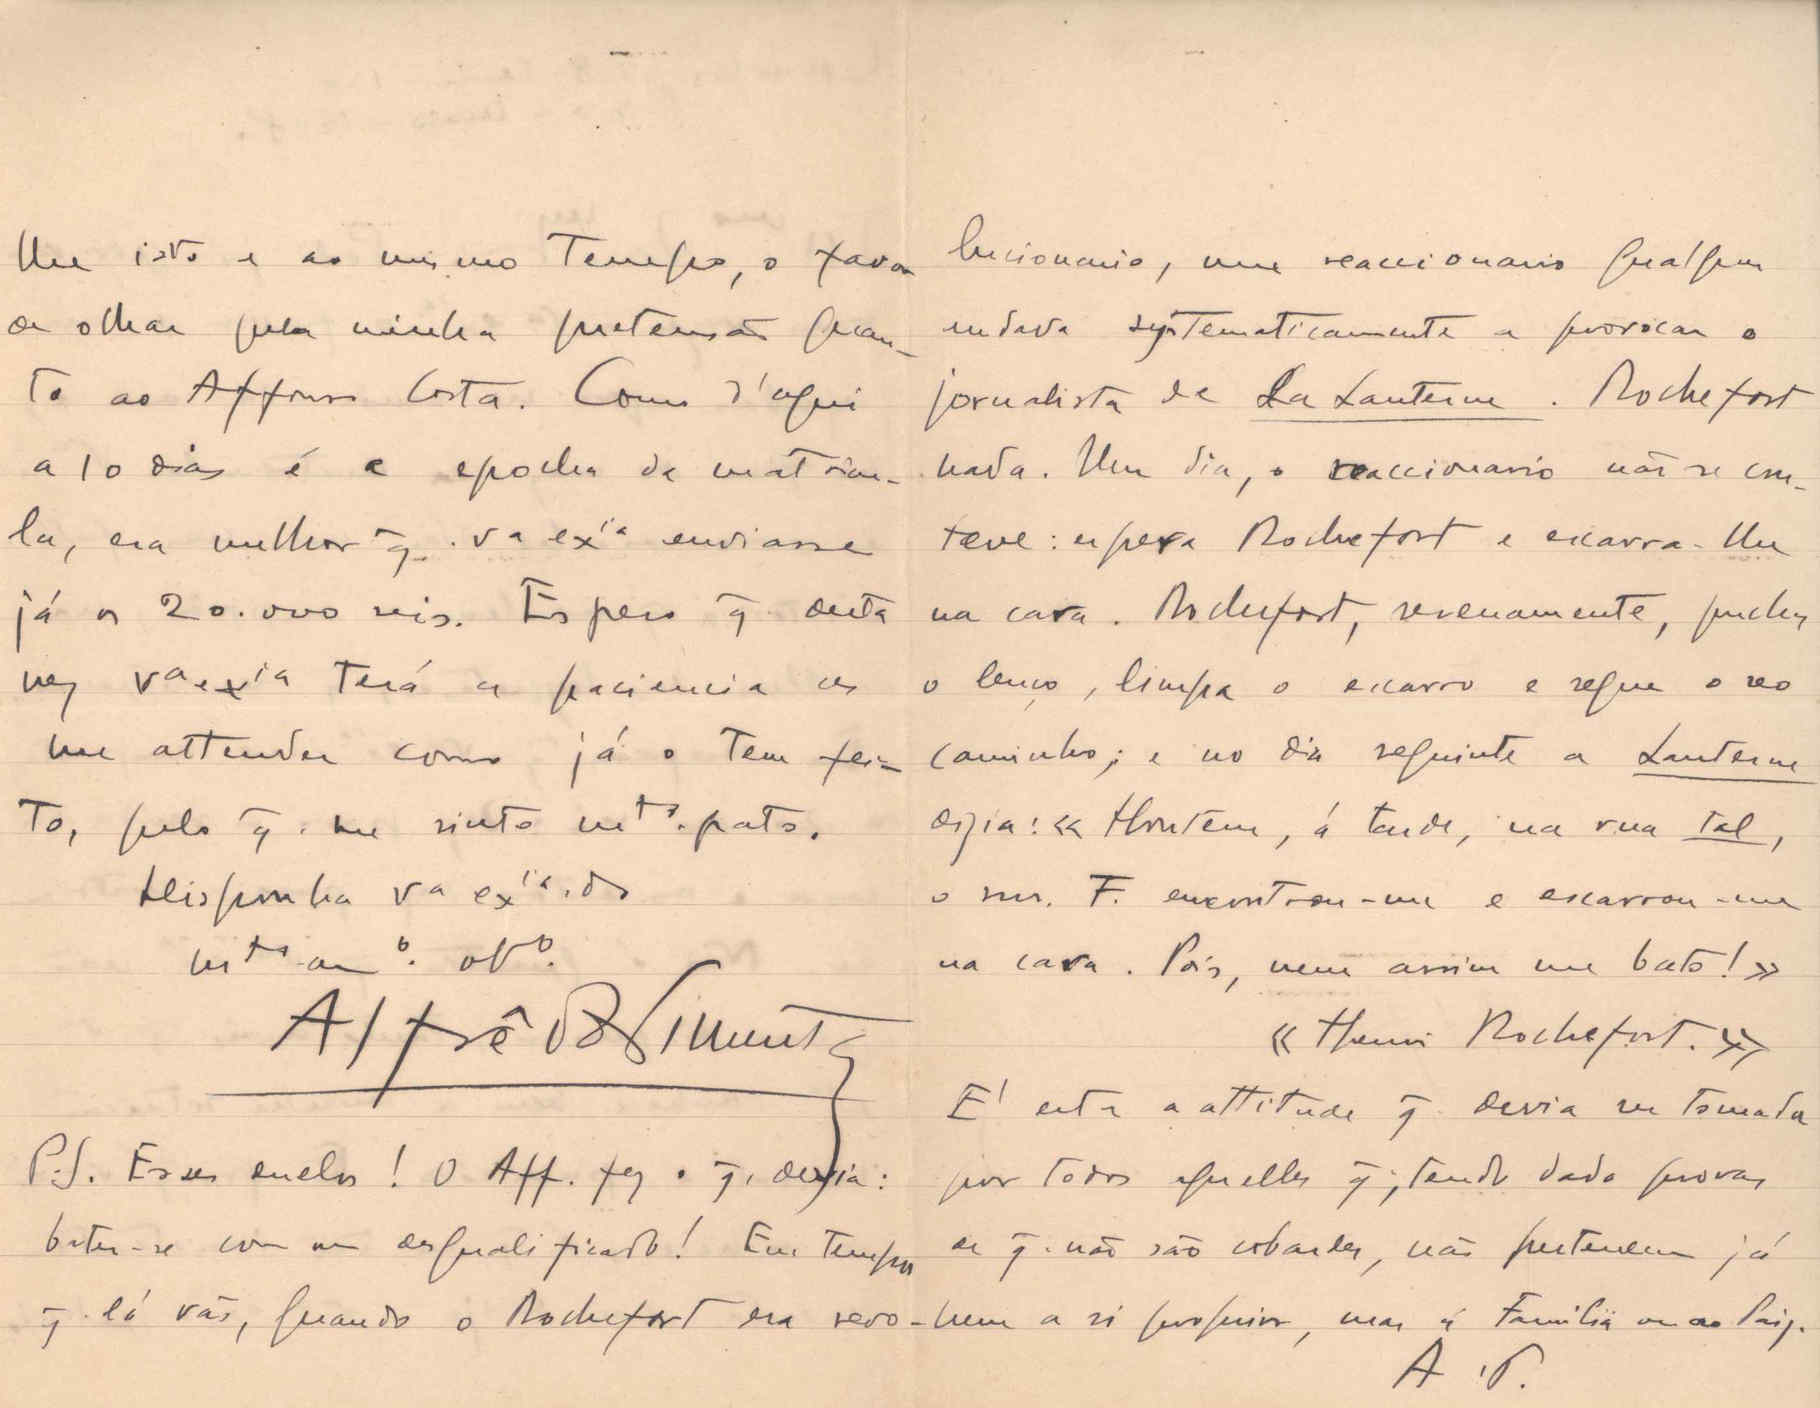 lhe isto e ao mesmo Tempo, o favor
de olhar pela minha pretensão quan-
to ao Affonso Costa. Como d'aqui
a 10 dias é a epocha da matricu-
la, era melhor q̄. vª exⁱª enviasse
já os 20.000 reis. Espero q̄. desta
vez vª exⁱª terá a paciencia de
me attender como já o tem fei-
to, pelo q̄. me sinto mᵗᵒ. grato.
Disponha vª exⁱª. do
mᵗᵒ. amº. obº.
Alfrêdo Pimenta
P.S. Esses duelos! O Aff. fez o q̄. devia:
bater-se com um desqualificado! Em tempos
q̄. lá vão, quando o Rochefort era revo-
lucionario, um reaccionario qualquer
andava systematicamente a provocar o
jornalista da La Lanterne. Rochefort
nada. Um dia, o reaccionario não se con-
teve: espera Rochefort e escarra-lhe
na cara. Rochefort, serenamente, puchou
o lenço, limpa o escarro e segue o seo
caminho; e no dia seguinte a Lanterne
dizia: «Hontem, á tarde, na rua tal,
o snr. F. encontrou-me e escarrou-me
na cara. Pois, nem assim me bato!»
«Henri Rochefort.»
E' esta a attitude q̄. devia ser tomada
por todos aquelles q̄., tendo dado provas
de q̄. não são cobardes, não pertencem já
nem a si proprios, mas á Familia ou ao Paiz.
A. P.